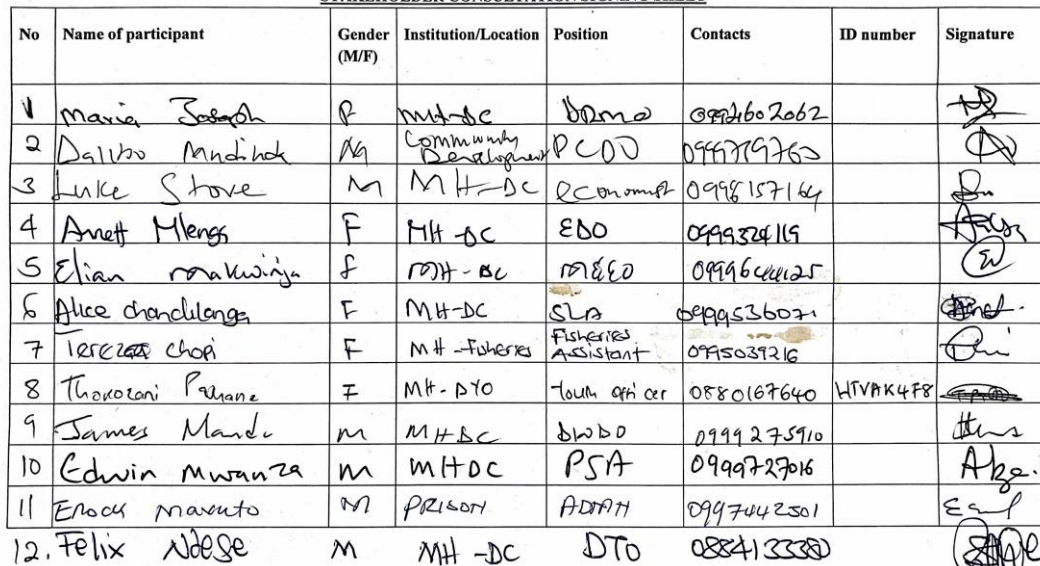 STAKEHOLDER CONSULTATION SIGNING SHEET
No Name of participant Gender (M/F) Institution/Location Position Contacts ID number Signature
1 Maria Joseph F MH-DC DRMO
2 M Community Development PCDO 0999719760
3 Luke Stove M MH-DC Economist 0998157164
4 Anett Mlenga F MH-DC EDO 0999324119
5 Elian Makwinja F MH-DC M&EO 0999644125
6 Alice chandilanga F MH-DC SLA 0999536071
7 Tereza chopi F MH-Fisheries Fisheries Assistant 0995039216
8 Thokozani F MH-DYO Youth officer 0880167640 HTVAK4F8
9 James M MHDC DWDO 0999275910
10 Edwin Mwanza M MHDC PSA 0999727016
11 Enock Mavuto M PRISON ADMN 0997442501
12. Felix Ndese M MH-DC DTO 0884133380